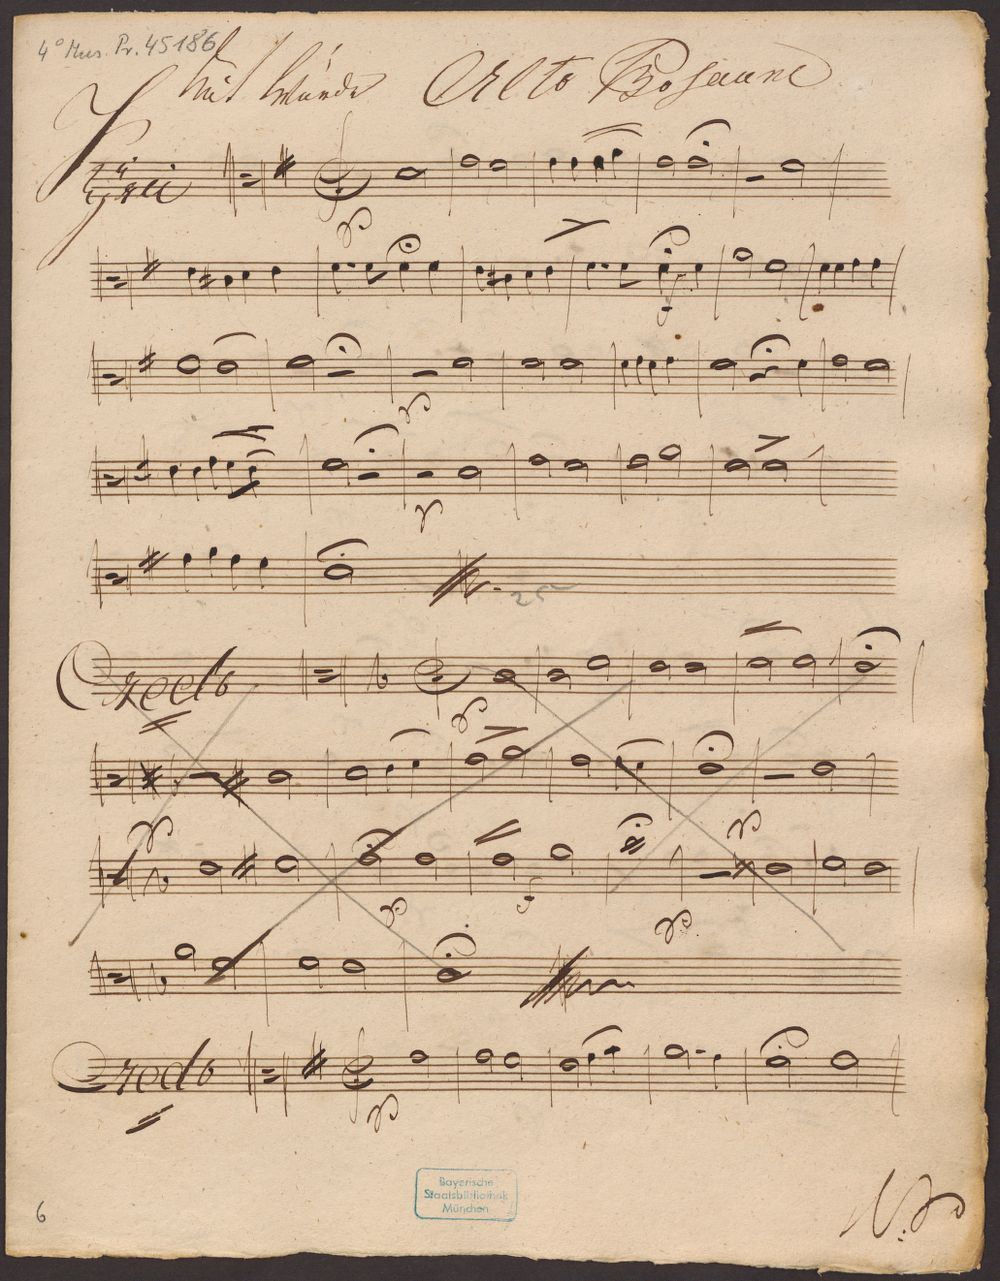 4° Mus. Pr. 45186
Mit Würde Alto Posaune
Kyrie
25
Credo
Credo
Bayerische
Staatsbibliothek
München
6